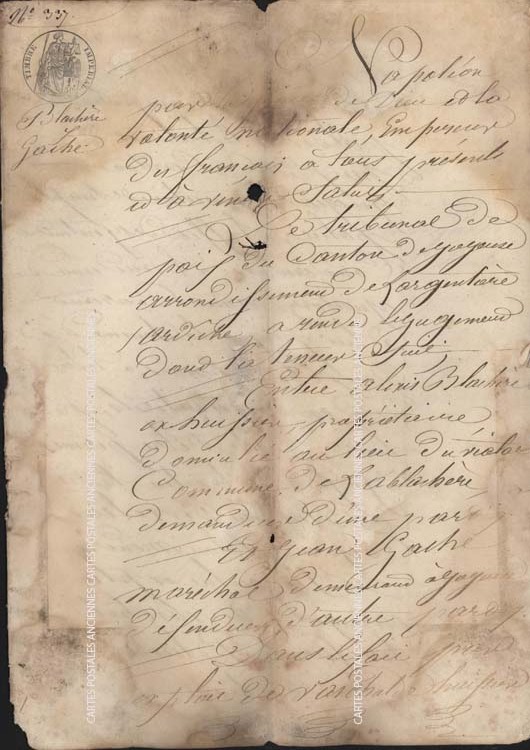 N° 337.
TIMBRE IMPERIAL
Blachère
Gache
Napoléon
par la de Dieu et la
volonté nationale, Empereur
des français a tous présents
et à venir Salut,
Le tribunal de
paix du Canton de Joyeuse
arrondissement de Largentière
ardèche a rendu le jugement
dont la teneur Suit,
Entre alexis Blachère
ex huissier propriétaire
domicilié au lieu du
Commune de Lablachère
demandeur d'une part,
Et Jean Gache
maréchal demeurant à Joyeuse
défendeur d'autre part,
Dans le fait par
exploit de huissier
CARTES POSTALES ANCIENNES CARTES POSTALES ANCIENNES CARTES POSTALES ANCIENNES
CARTES POSTALES ANCIENNES CARTES POSTALES ANCIENNES CARTES POSTALES ANCIENNES